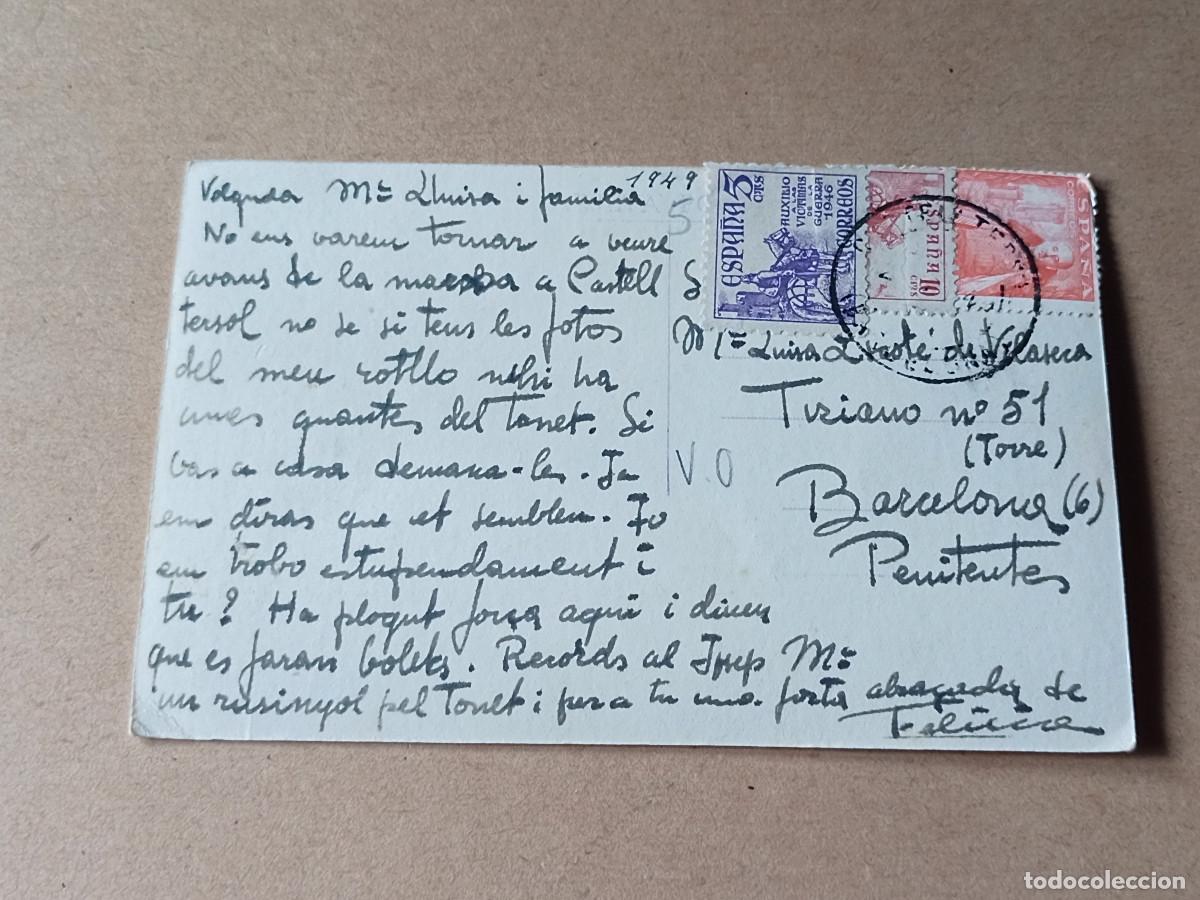 Volguda Mª Lluisa i familia
1949
No ens varem tornar a veure
avans de la marxa a Castell
tersol no se si tens les fotos
del meu rotllo n'hi ha
unes quantes del Tonet. Si
vas a casa demana-les. Ja
em diras que et semblen. Jo
em trobo estupendament i
tu? Ha plogut força aqui i diuen
que es faran bolets. Records al Josep Mª
un rusinyol pel Tonet i per a tu una forta abraçada de
5
ESPAÑA 5 CTS
AUXILIO A LAS VICTIMAS DE LA GUERRA 1946
CORREOS
ESPAÑA
10 CTS
CORREOS
ESPAÑA
S
Mª Luisa de Vilaseca
Tiziano nº 51
(Torre)
V.O
Barcelona (6)
Penitentes
todocoleccion